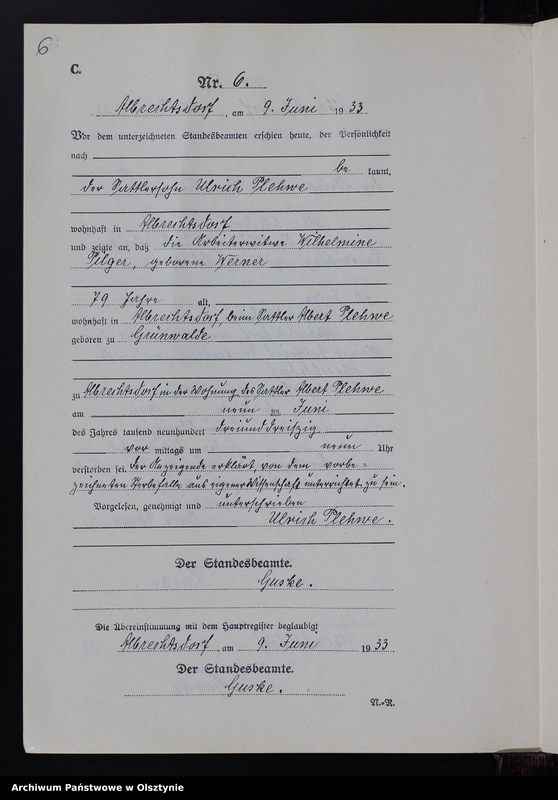 6
C.
Nr. 6.
Albrechtsdorf, am 9. Juni 1933
Vor dem unterzeichneten Standesbeamten erschien heute, der Persönlichkeit
nach
be kannt,
der Sattlersohn Ulrich Plehwe
wohnhaft in Albrechtsdorf
und zeigte an, daß die Arbeiterwitwe Wilhelmine
Pilger, geborene Werner
79 Jahre alt,
wohnhaft in Albrechtsdorf, beim Sattler Albert Plehwe
geboren zu Grünwalde
zu Albrechtsdorf in der Wohnung des Sattler Albert Plehwe
am neun ten Juni
des Jahres tausend neunhundert dreiunddreiszig
vor mittags um neun Uhr
verstorben sei. Der Anzeigende erklärt, von dem vorbe=
zeichneten Sterbefalle aus eigener Wissenschaft unterrichtet zu sein.
Vorgelesen, genehmigt und unterschrieben
Ulrich Plehwe.
Der Standesbeamte.
Guske.
Die Übereinstimmung mit dem Hauptregister beglaubigt
Albrechtsdorf, am 9. Juni 1933
Der Standesbeamte.
Guske.
N.=R.
Archiwum Państwowe w Olsztynie